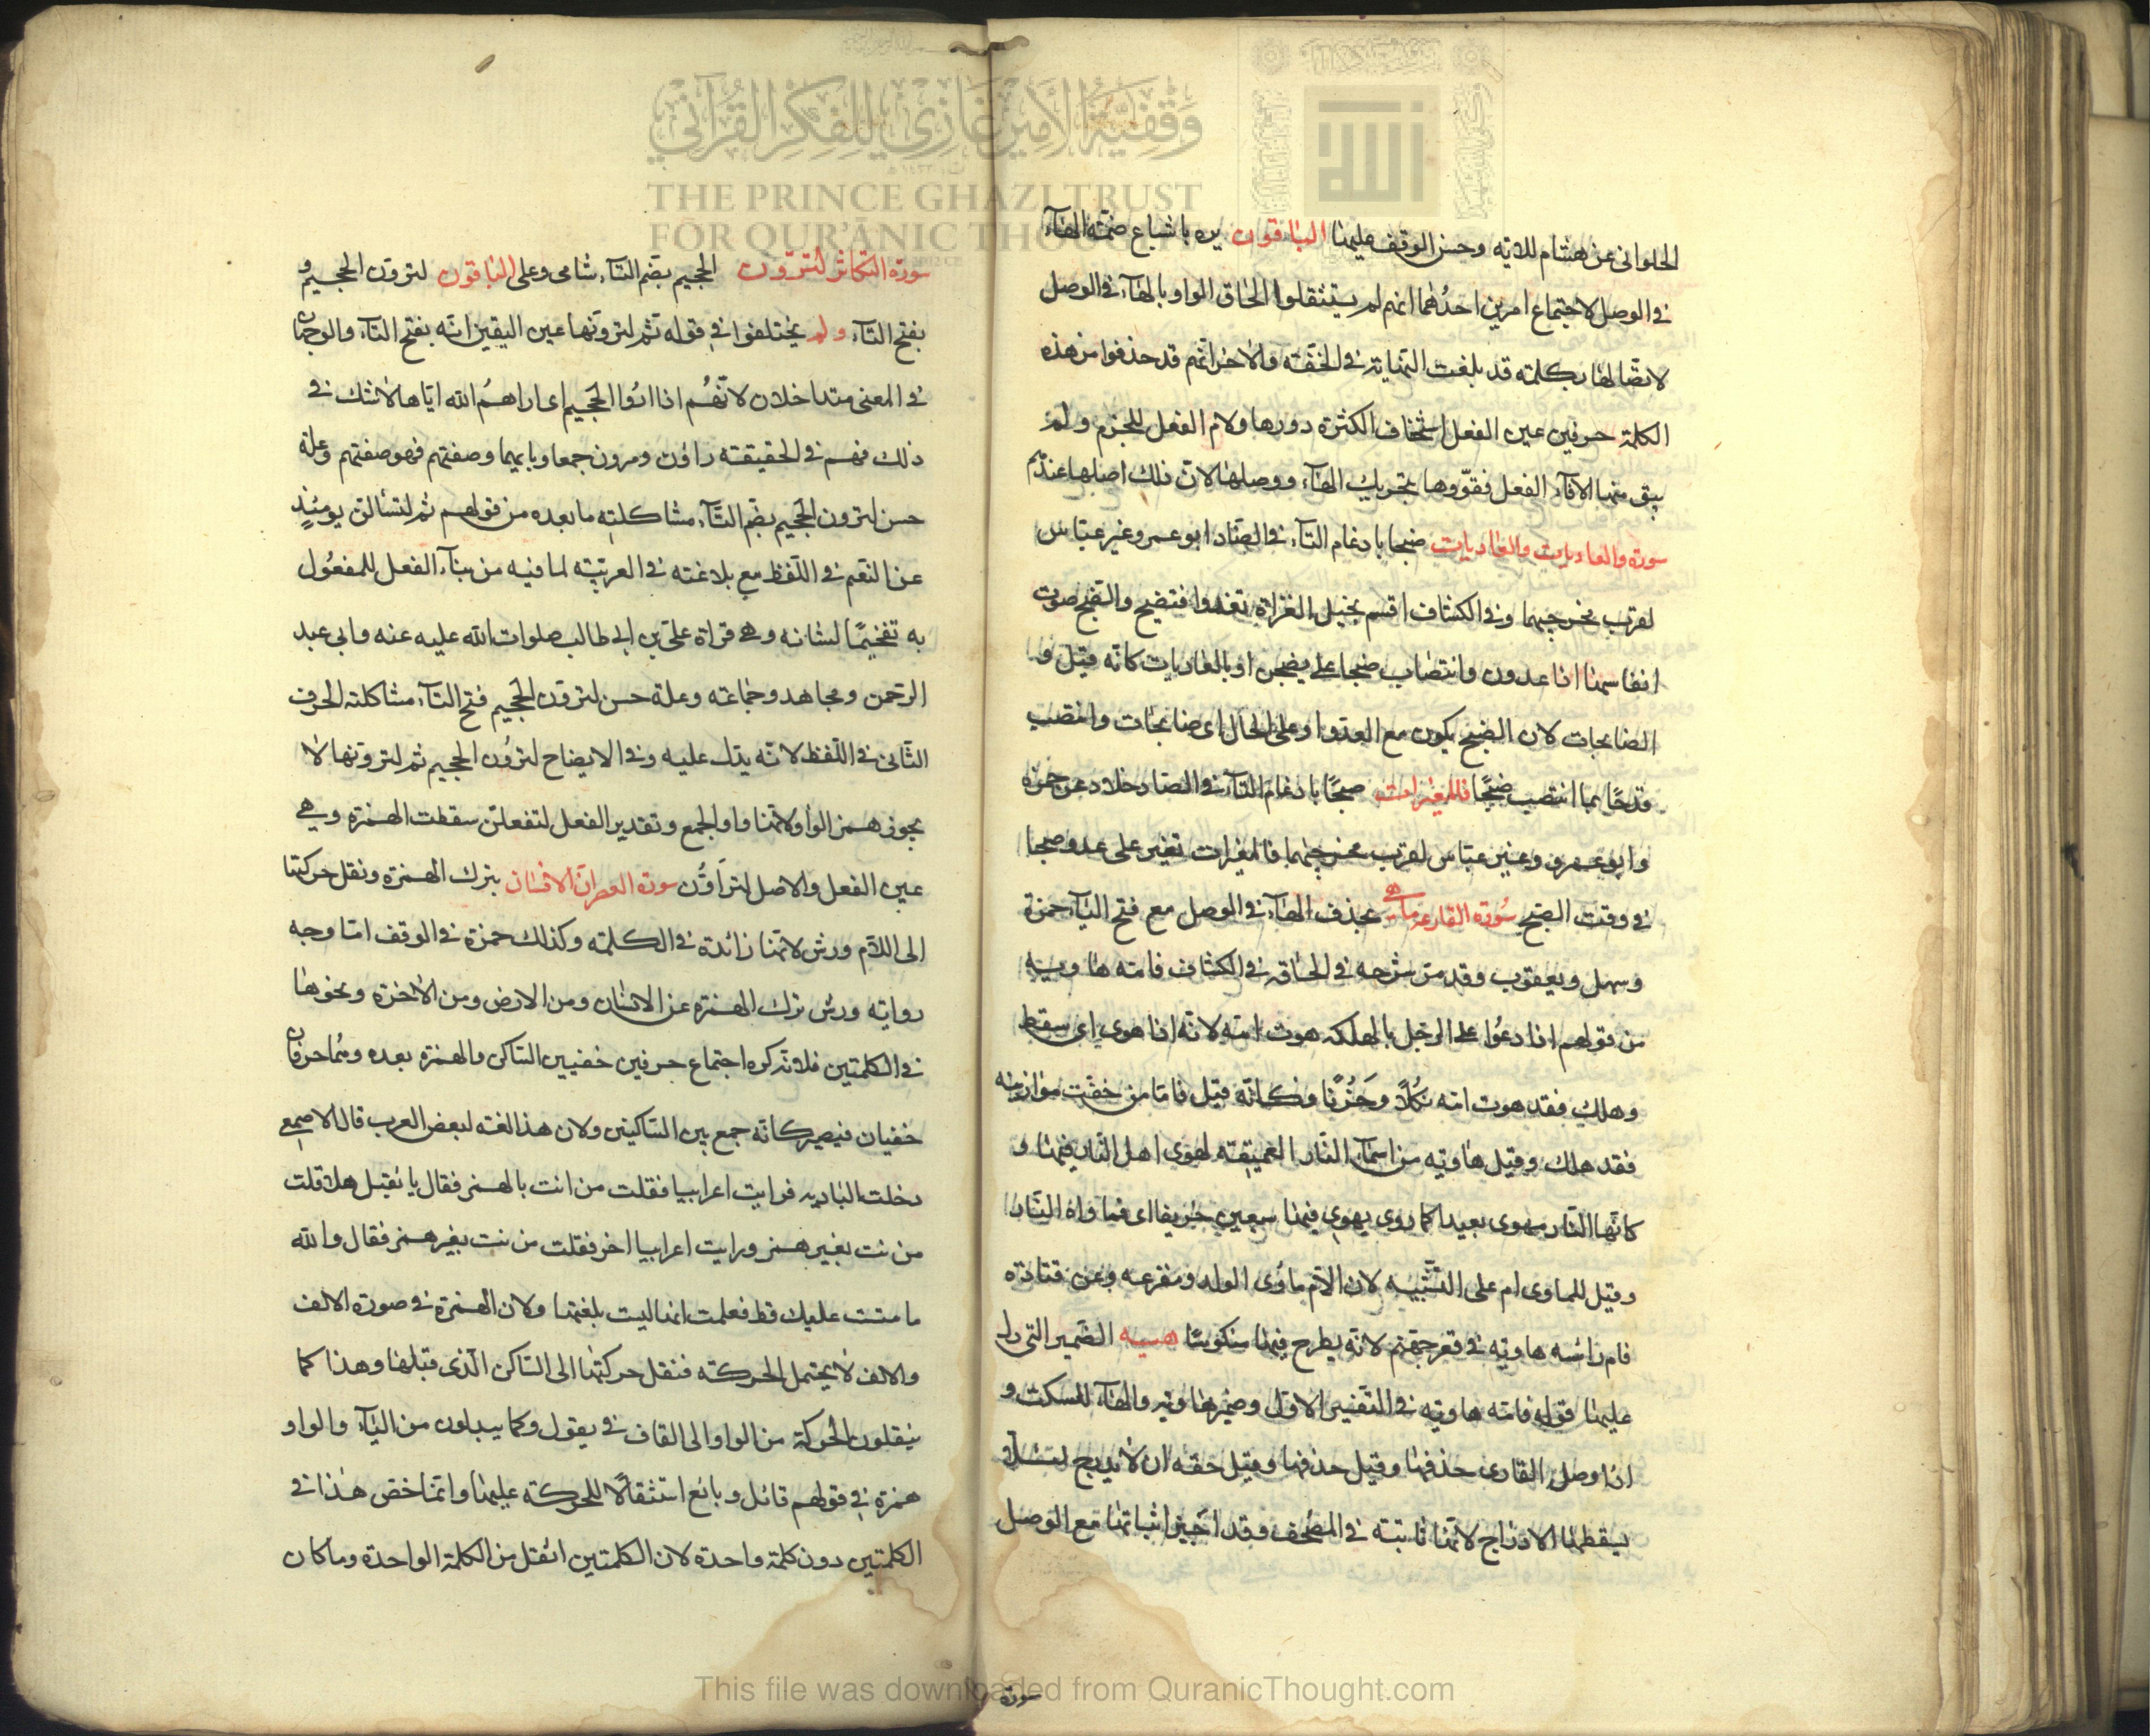 وقفية الأمير غازي للفكر القرآني
THE PRINCE GHAZI TRUST
FOR QUR'ĀNIC THOUGHT
الحلوانى عن هشام للاتيه وحسن الوقف عليها الباقون يره باشباع ضمّة الهآء
فى الوصل لاجتماع امرين احدُهما انهم لم يستثقلوا الحاق الواو بالهآء فى الوصل
لاتصالها بكلمة قد بلغت النهاية فى الخفّة والاخر انّهم قد حذفوا من هذه
الكلمة حرفين عين الفعل استخفافا لكثرة دورها ولام الفعل للجزم ولم
يبق منها الا فآء الفعل فقوّوها بتحريك الهآء ووصلها لانّ ذلك اصلها عندهم
سورة والعاديات والعاديات ضبحا بادغام التآء فى الضاد ابو عمرو غير عباس
لقرب مخرجيهما وفى الكشاف اقسم بخيل الغزاة تغدوا فتضبح والضبح صوت
انفاسها اذا عدون وانتصاب ضبحا على يضبحن او بالعاديات كانّه قيل و
الضابحات لان الضبح يكون مع العدو او على الحال اى ضابحات وانتصب
قدحًا بما انتصب ضبحًا فالمغيرات صبحًا بادغام التآء فى الصاد خلاد عن حمزة
وابو عمرو وغير عباس لقرب مخرجيهما فالمغيرات تغير على عدو صبحا
فى وقت الصبح سورة القارعة ماهى بحذف الهآء فى الوصل مع فتح اليآء حمزة
وسهل ويعقوب وقد مر شرحه فى الحاقة فى الكشاف فامه هاوية
من قولهم اذا دعوا على الرجل بالهلكه هوت امه لانه اذا هوى اى سقط
وهلك فقد هوت امه ثكلًا وحَزُنًا فكانّه قيل فامّا من خفّت موازينه
فقد هلك وقيل هاوية من اسمآء النّار العميقة لهوى اهل النّار فيها و
كانّها النّار مهوى بعيدا كما روى يهوى فيها سبعين خريفا اى فماواه النّار
وقيل للماوى ام على التّشبيه لان الامّ ماوى الولد ومفزعه وعن قتادة
فام راسه هاوية فى قعر جهنم لانّه يطرح فيها منكوسًا هيه الضمير التى دل
عليها قوله فامه هاوية فى التّفسير الاوّل وضمير هاوية والهآء للسكت و
اذا وصل القارى حذفها وقيل حذفها وقيل حقّه ان لا يدرج لئلا
يسقطها الادراج لانّها ثابتة فى المصحف وقد اجيز اثباتها مع الوصل
سورة
سورة التكاثر لترون الجحيم بضم التآء شامى وعلى الباقون لترون الجحيم و
بفتح التآء ولم يختلفوا فى قوله ثم لترونها عين اليقين انّه بفتح التآء والوجهان
فى المعنى متداخلان لانّهُم اذا اروا الجحيم اى اراهُم الله اياها لا شك فى
ذلك فهم فى الحقيقة راؤن ومرون جمعا وبايهما وصفتهم فهو صفتهم وعلة
حسن لترون الجحيم بضم التّآء مشاكلة مابعده من قولهم ثم لتسألن يومئذٍ
عن النعيم فى اللّفظ مع بلاغته فى العربيّة لما فيه من بنآء الفعل للمفعُول
به تفخيمًا لشانه وهى قراة على بن ابى طالب صلوات الله عليه عنه وابى عبد
الرحمن ومجاهد وجماعة وعلة حسن لترون الجحيم فتح التآء مشاكلته الحرف
الثّانى فى اللّفظ لانّه يدل عليه وفى الايضاح لترون الجحيم ثم لترونها لا
يجوز همز الواو لانّها واو الجمع وتقدير الفعل لتفعلنّ سقطت الهمزة وهى
عين الفعل والاصل لترأوُّن سورة العصر ان الانسان بترك الهمزة ونقل حركتها
الى اللآم ورش لانّها زائدة فى الكلمة وكذلك حمزة فى الوقف امّا وجه
رواية ورش ترك الهمزة عن الانسان ومن الارض ومن الاخرة ونحوها
فى الكلمتين فلانّه كره اجتماع حرفين خفيين السّاكن والهمزة بعده وهُما حرفان
خفيان فيصير كانّه جمع بين السّاكنين ولان هذا لغة لبعض العرب قال الاصمعى
دخلت البادية فرايت اعرابيا فقلت من انت بالهمز فقال يا ثقيل هلا قلت
من نت بغير همز ورايت اعرابيا اخر فقلت من نت بغير همز فقال والله
ما مننت عليك قط فعلمت انها ليست بلغتها ولان الهمزة فى صورة الالف
والالف لا يحتمل الحركة فنقل حركتها الى السّاكن الّذى قبلها وهذا كما
ينقلون الحركة من الواو الى القاف فى يقول وكما يبدلون من اليآء والواو
همزة فى قولهم قائل وبائع استثقالًا للحركة عليها وانّما خصّ هذا فى
الكلمتين دون كلمة واحدة لان الكلمتين اثقل من الكلمة الواحدة وما كان
This file was downloaded from QuranicThought.com